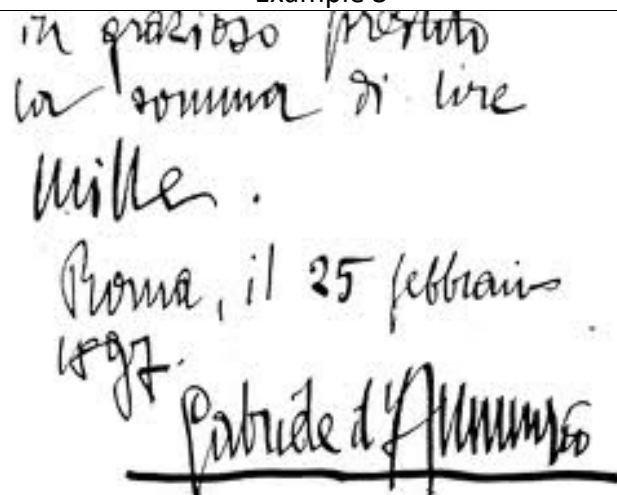 Example 3
in grazioso prestito
la somma di lire
mille.
Roma, il 25 febbraio
1897.
Gabriele d'Annunzio